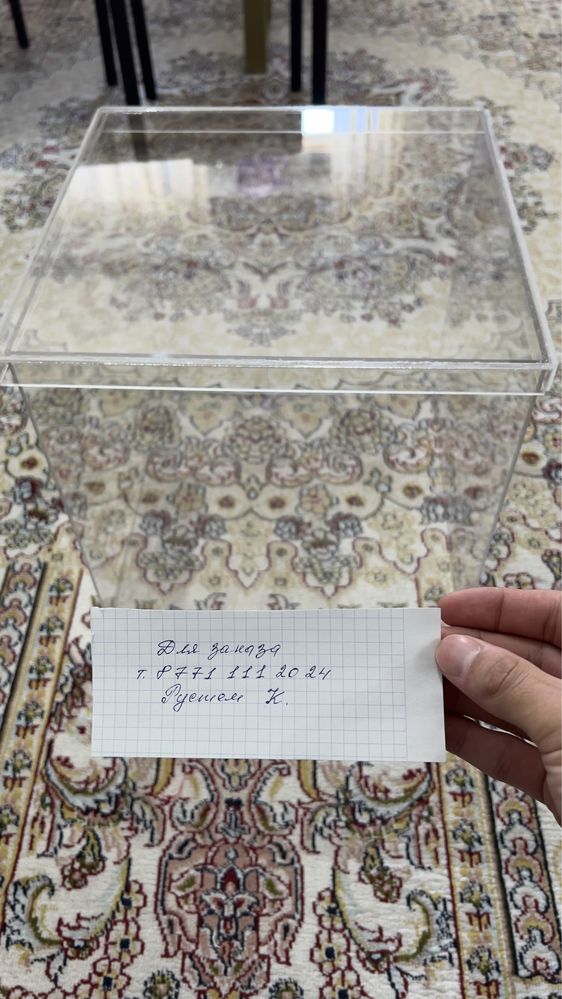 Для заказа
т. 8771 111 20 24
Рустем К.